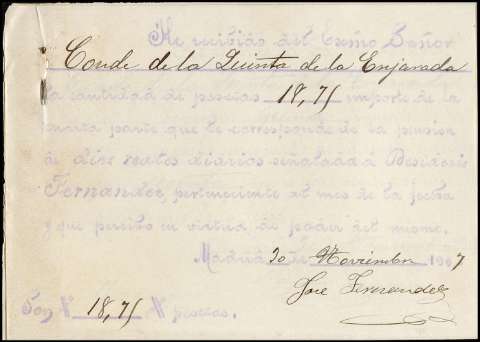 He recibido del Exmo. Señor
Conde de la Quinta de la Enjarada
la cantidad de pesetas 18,75 importe de la
cuarta parte que le corresponde de la pension
de diez reales diarios señalada á Desiderio
Fernandez, perteneciente al mes de la fecha
y que percibo en virtud de poder del mismo.
Madrid 30 de Noviembre 1907
José Fernandez
Son # 18,75 # pesetas.